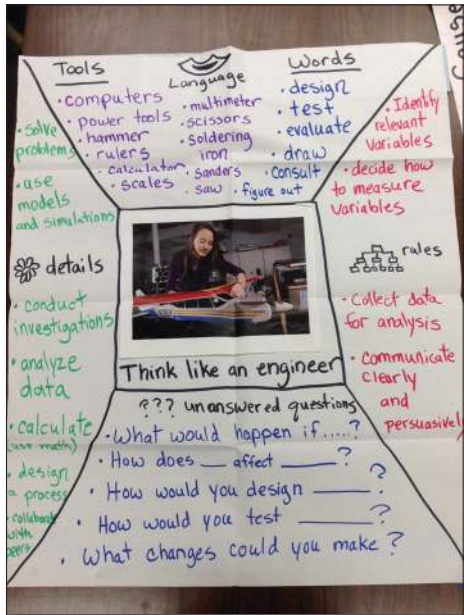 Tools
Language
Words
• computers
• power tools
• hammer
• rulers
• calculator
• scales
• multimeter
• scissors
• soldering
iron
• sanders
saw
• design
• test
• evaluate
• draw
• consult
• figure out
• solve
problems
• use
models
and simulations
details
• conduct
investigations
• analyze
data
• calculate
(use math)
• design
a process
• collaborate
with
peers
• Identify
relevant
variables
• decide how
to measure
variables
rules
• Collect data
for analysis
• Communicate
clearly
and
persuasively
Think like an engineer
??? unanswered questions
• What would happen if.....?
• How does __ affect ____?
• How would you design ____?
• How would you test ____?
• What changes could you make?